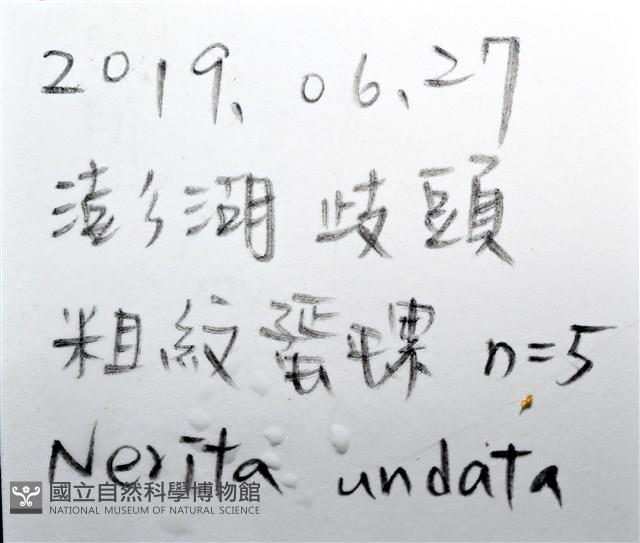 2019、06、27
澎湖歧頭
粗紋蜑螺 n=5
Nerita undata
國立自然科學博物館
NATIONAL MUSEUM OF NATURAL SCIENCE